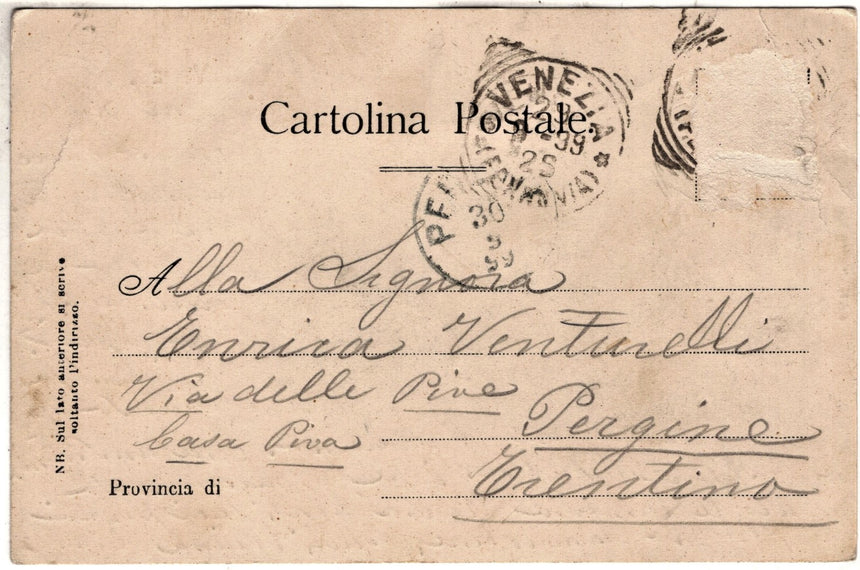 Cartolina Postale.
VENEZIA
(FERROVIA)
99
PER
30
99
Alla Signora
Enrica Venturelli
Via delle Pive
Casa Piva
Pergine
Provincia di
Trentino
NB. Sul lato anteriore si scrive
soltanto l'indirizzo.